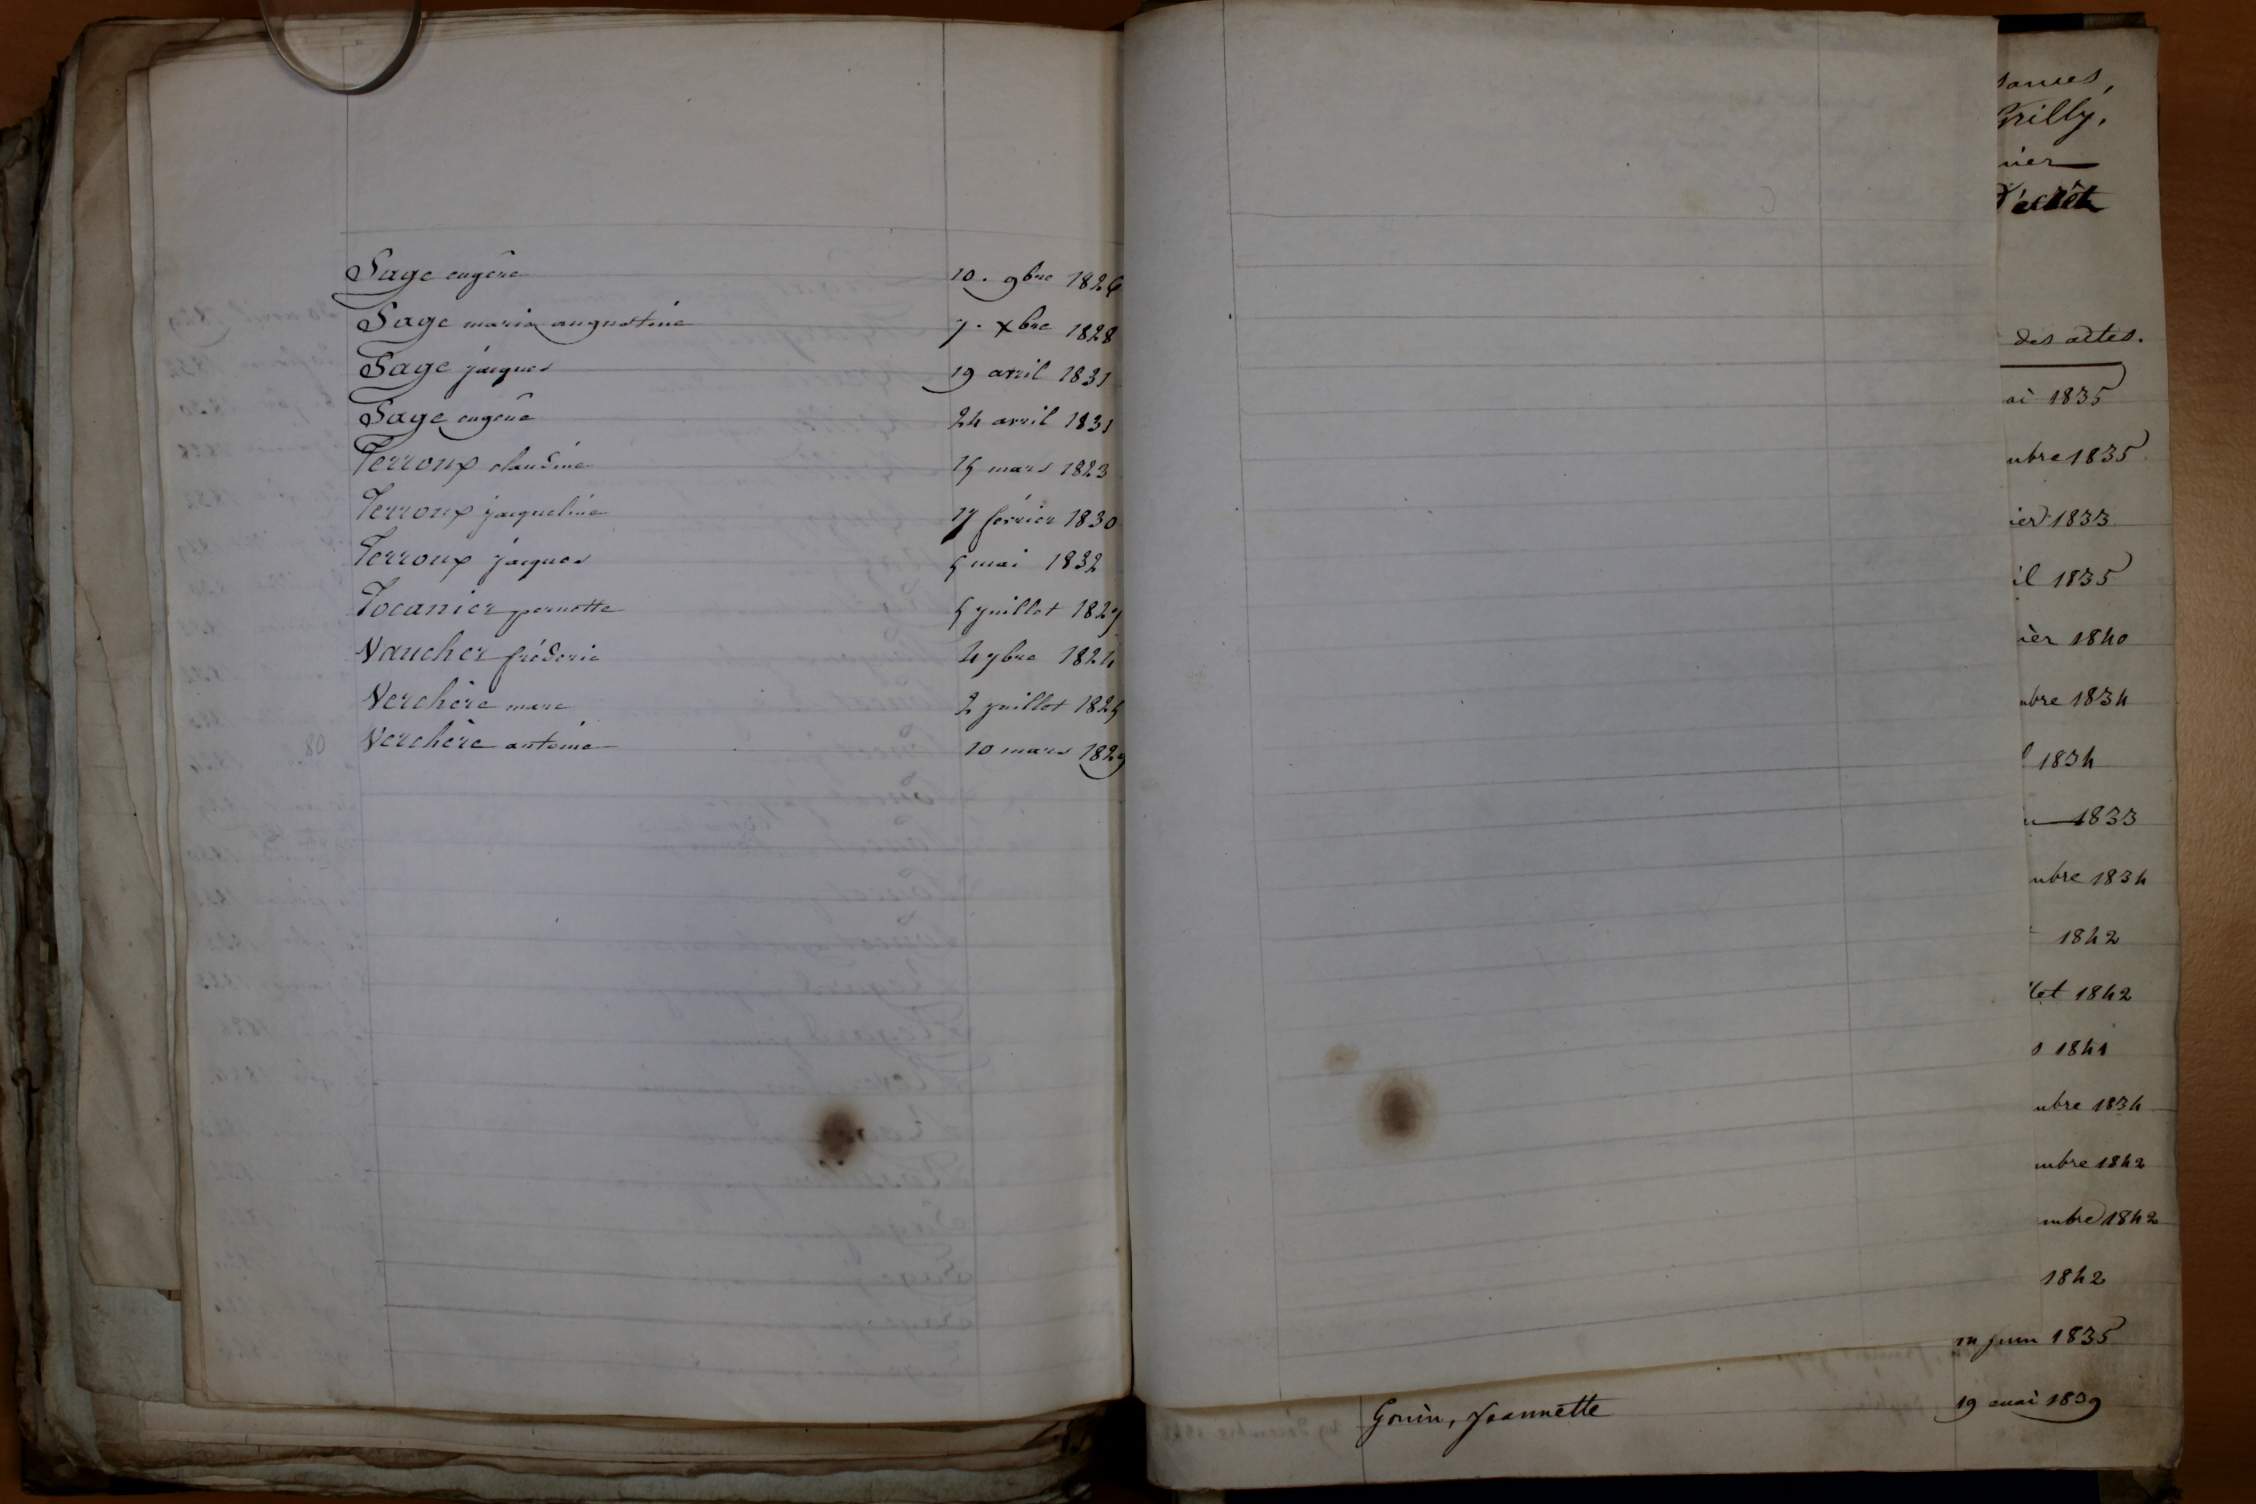 Sage eugêne 10. 9bre 1826
Sage maria augustine 7. xbre 1828
Sage jacques 19 avril 1831
Sage eugêne 24 avril 1831
Terroux claudine 15 mars 1823
Terroux jacqueline 17 février 1830
Terroux jacques 5 mai 1832
Tocanier pernette 5 juillet 1829
Vaucher fréderic 4 7bre 1824
Verchère marc 2 juillet 1825
80 Verchère antoine 10 mars 1829
sances,
Grilly,
vier
des actes.
ai 1835
mbre 1835
ier 1833
il 1835
ier 1840
mbre 1834
l 1834
1833
mbre 1834
1842
llet 1842
s 1841
mbre 1834
mbre 1842
mbre 1842
1842
juin 1835
Gonin, Jeannette 19 mai 1839